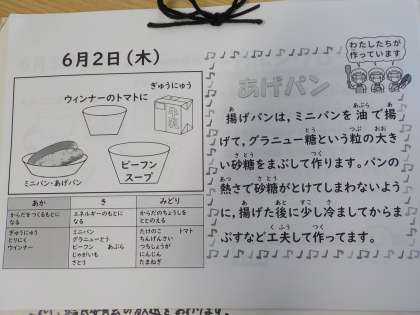 6月2日(木)
ぎゅうにゅう
ウィンナーのトマトに
牛乳
ミニパン・あげパン
ビーフン
スープ
あか
き
みどり
からだをつくるもとに
なる
エネルギーのもとに
なる
からだのちょうしを
ととのえる
ぎゅうにゅう
とりにく
ウインナー
ミニパン
グラニューとう
ビーフン あぶら
じゃがいも
さとう
たけのこ トマト
ちんげんさい
つちしょうが
にんじん
たまねぎ
わたしたちが
作っています
あげパン
揚げパンは，ミニパンを油で揚
げて，グラニュー糖という粒の大き
い砂糖をまぶして作ります。パンの
熱さで砂糖がとけてしまわないよう
に，揚げた後に少し冷ましてからま
ぶすなど工夫して作ってます。